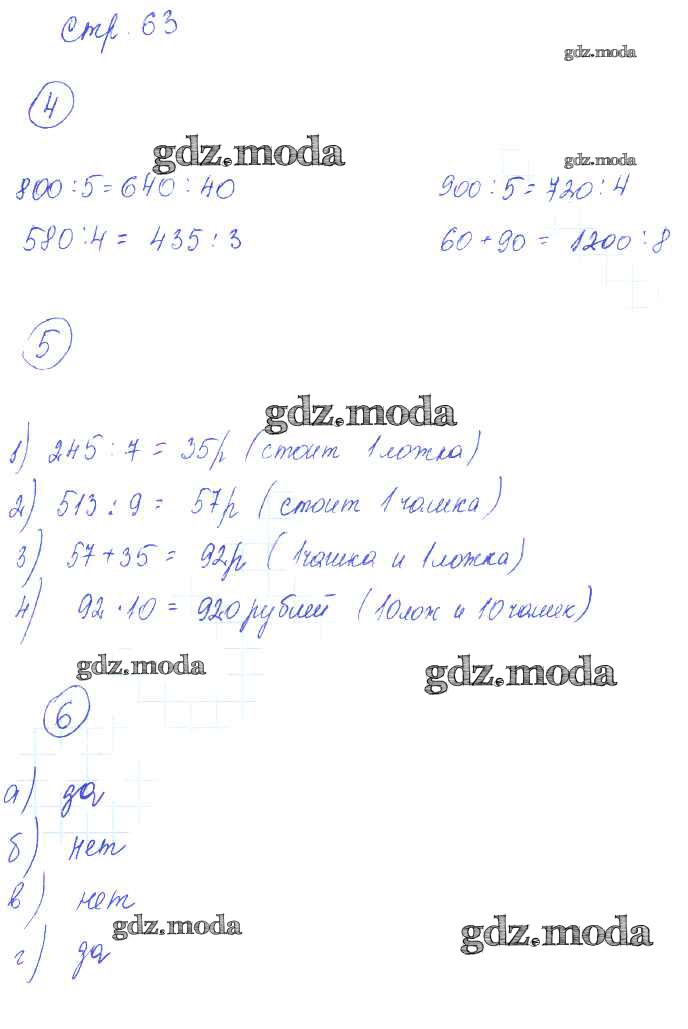 Стр. 63
gdz.moda
4
gdz.moda
gdz.moda
800 : 5 = 640 : 40
900 : 5 = 720 : 4
580 : 4 = 435 : 3
60 + 90 = 1200 : 8
5
gdz.moda
1) 245 : 7 = 35р (стоит 1 ложка)
2) 513 : 9 = 57р (стоит 1 чашка)
3) 57 + 35 = 92р (1 чашка и 1 ложка)
4) 92 · 10 = 920 рублей (10 лож и 10 чашек)
gdz.moda
gdz.moda
6
а) да
б) нет
в) нет
gdz.moda
gdz.moda
г) да